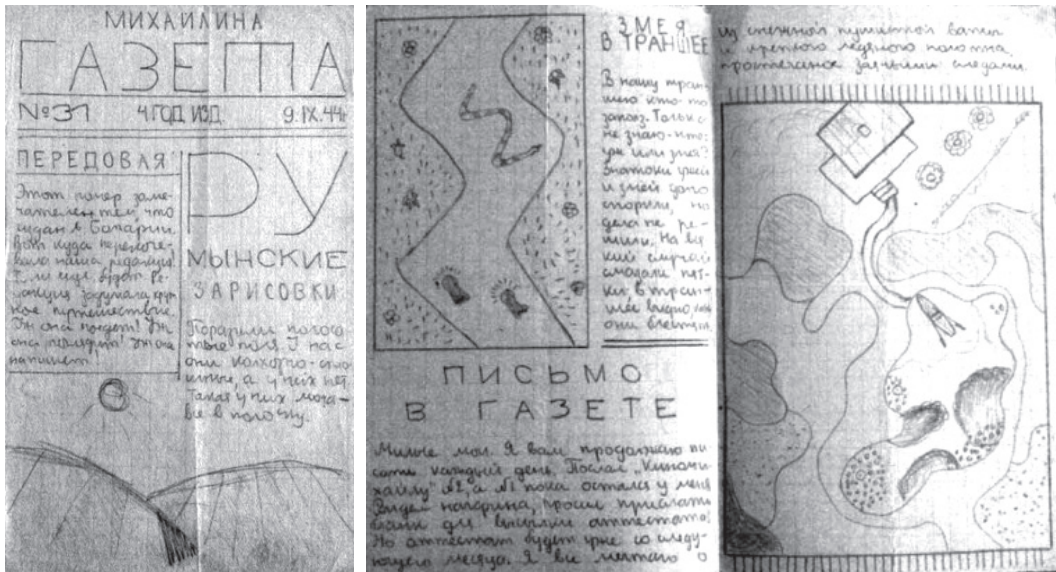 МИХАЙЛИНА
ГАЗЕТА
№31 4 ГОД ИЗД. 9.IX.44
ПЕРЕДОВАЯ
Этот номер заме-
чателен тем, что
издан в Болгарии.
Вот куда перекоче-
вала наша редакция!
То ли еще будет! Ре-
дакция задумала круп-
ное путешествие.
Уж она поедет! Уж
она поглядит! Уж она
напишет!
РУ
МЫНСКИЕ
ЗАРИСОВКИ
Пошли полоса-
тые поля. У нас
они колхозно-спло-
шные, а у них нет.
Такая у них мода-
все в полоску.
ЗМЕЯ
В ТРАНШЕЕ
В нашу тран-
шею кто-то
заполз. Только
не знаю-кто:
уж или змея?
Знатоки ужей
и змей долго
спорили, но
дела не ре-
шили. На вся-
кий случай
смазали пят-
ки. В тран-
шее видно, как
они блестят.
ПИСЬМО
В ГАЗЕТЕ
Милые мои. Я вам продолжаю пи-
сать каждый день. Послал „Киноми-
хайлу" №2, а №1 пока остался у меня
Видел начфина, просил прислать
бланк для высылки аттестата.
Но аттестат будет уже со следу-
ющего месяца. Я все мечтаю о
из снежной пушистой ваты
и крепкого ледяного полотна,
простеганное заячьими следами.